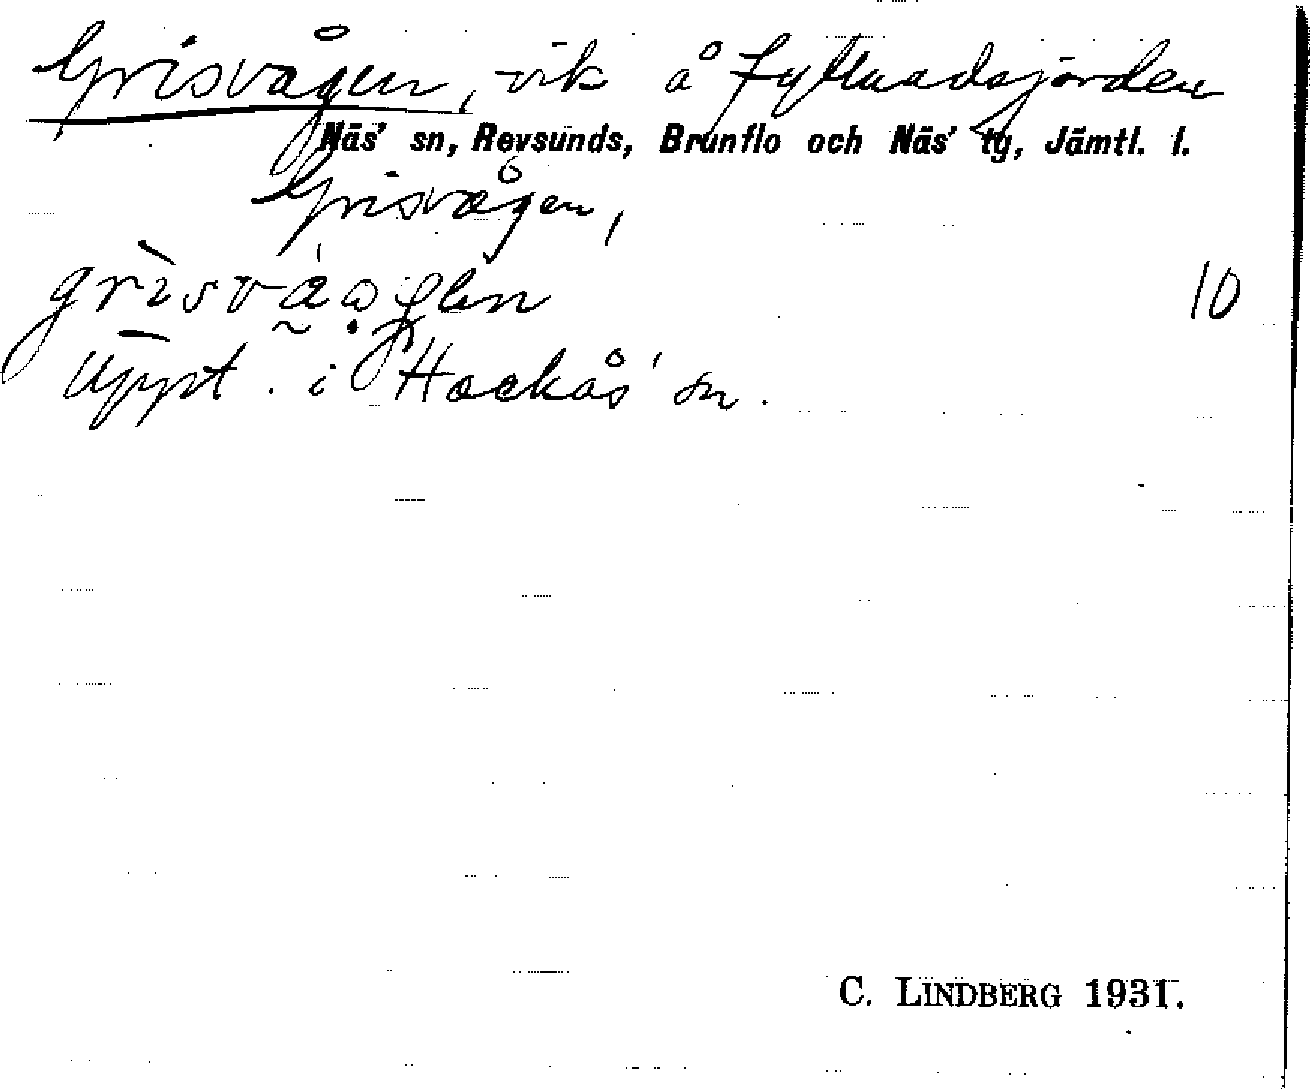 Grisvågen, vik å Fyllnadsjärden
Näs' sn, Revsunds, Brunflo och Näs' tg, Jämtl. l.
Grisvågen,
10
Uppt. i Hackås' sn.
C. LINDBERG 1931.